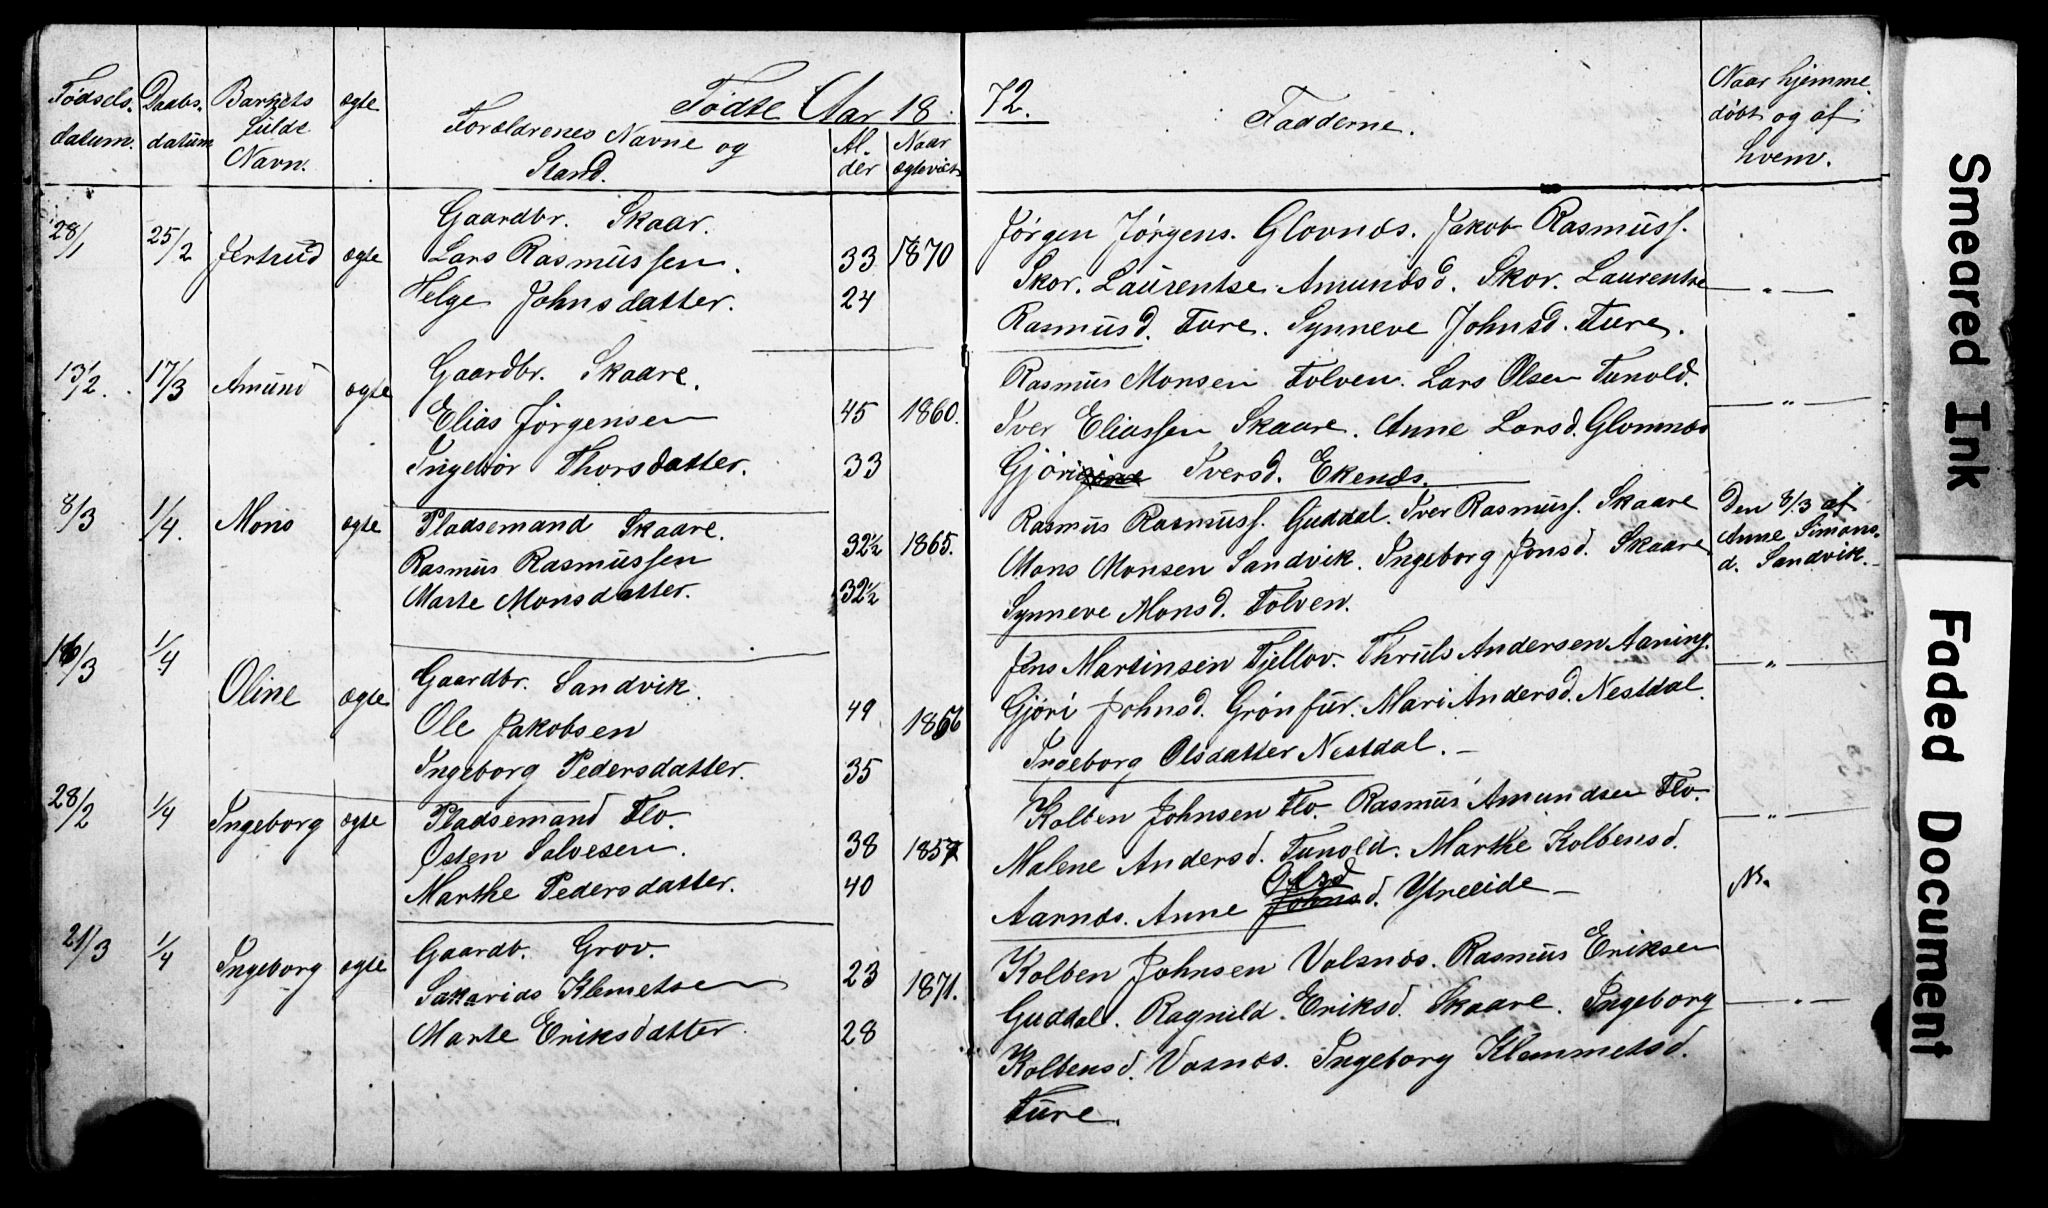 Fødte Aar 1872.
Fødsels- datum. Daabs- datum Barnets fulde Navn. ægte Forældrenes Navne og Stand. Al- der Naar ægteviet Fadderne. Naar hjemme- døbt og af hvem.
28/1 25/2 Jertrud ægte
Gaardbr. Skaar.
Lars Rasmussen. 33 1870
Helge Johnsdatter. 24
Jørgen Jørgens. Glovnæs. Jakob Rasmuss.
Skor. Laurentse Amundsd. Skor. Laurentse — " —
Rasmusd. Ture. Synneve Johnsd. Ture.
13/2. 17/3 Amund ægte
Gaardbr. Skaare.
Elias Jørgensen 45 1860.
Ingebør Thorsdatter. 33
Rasmus Monsen Tolven. Lars Olsen Tunold.
Iver Eliassen Skaare. Anne Larsd. Glomnæs — " —
Gjøri Iversd. Ekenæs.
8/3 1/4. Mons ægte
Pladsemand Skaare.
Rasmus Rasmussen 32½ 1865.
Marte Monsdatter. 32½
Rasmus Rasmuss. Guddal. Iver Rasmuss. Skaare
Mons Monsen Sandvik. Ingeborg Jonsd. Skaare
Synneve Monsd. Tolven.
Den 8/3 af
Anne Simons-
d. Sandvik.
16/3 1/4 Oline ægte
Gaardbr. Sandvik.
Ole Jakobsen 49 1856
Ingeborg Pedersdatter. 35
Jens Martinsen Fjellov. Thruls Andersen Aaning. — " —
Gjøri Johnsd. Grønfur. Mari Andersd. Nestdal.
Ingeborg Olsdatter Nestdal. —
28/2 1/4 Ingeborg ægte
Pladsemand Flo.
Østen Salvesen. 38 1857
Marthe Pedersdatter. 40
Kolben Johnsen Flo. Rasmus Amundsen Flo. — " —
Malene Andersd. Tunold. Marthe Kolbensd.
Aarnæs. Anne Johnsd. Olsd Ytreeide — N.
21/3 1/4 Ingeborg ægte
Gaardb. Grov.
Sakarias Klemetsen 23 1871.
Marte Eriksdatter. 28
Kolben Johnsen Valsnæs. Rasmus Eriksen
Guddal. Ragnild Eriksd. Skaare. Ingeborg — " —
Kolbensd. Vasnæs. Ingeborg Klemmetsd.
Ture.
Smeared Ink
Faded Document